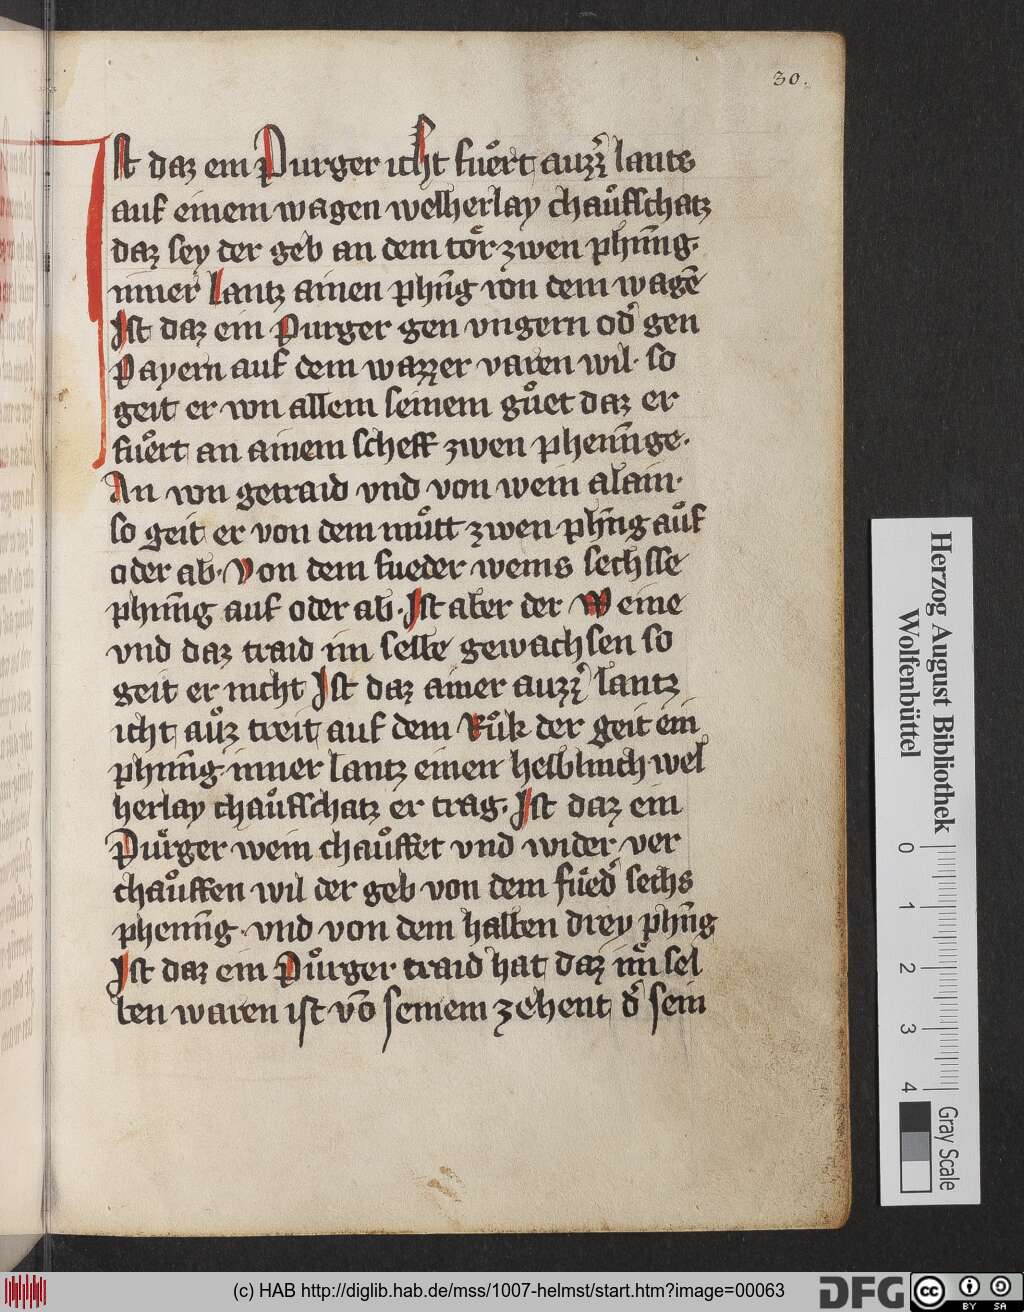 30.
Ist daz ein Purger icht fuͦrt auzz͛ lants
auf einem wagen welherlay chauͦfschatz
daz sey der geb an dem toͤr zwen phēnig.
inner Lantz ainen phn̄g von dem wagē
Ist daz ein Purger gen vngern od͛ gen
Payern auf dem wazzer varen wil. so
geit er von allem seinem guͦet daz er
fuͦrt an ainem scheff zwen pheninge.
An von getraid vnd von wein alain.
so geit er von dem muͦtt zwen phn̄g auͦf
oder ab. Von dem fueder weins sechsse
phēnig auf oder ab. Ist aber der Weine
vnd daz traid im selbe gewachsen so
geit er nicht Ist daz ainer auzz͛ lantz
icht auͦz treit auf dem Ruͦk der geit ein
phēnig. inner lantz einen helblinch wel
herlay chauͦfschatz er trag. Ist daz ein
Puͦrger wein chauͦffet vnd wider ver
chauͦffen wil der geb von dem fuͤd͛ sechs
phenīg. vnd von dem halben drey phn̄g
Ist daz ein Puͦrger traid hat daz im sel
ben waren ist vō seinem zehent od͛ sein
Herzog August Bibliothek
Wolfenbüttel
0
1
2
3
4
Gray Scale
(c) HAB http://diglib.hab.de/mss/1007-helmst/start.htm?image=00063
DFG
cc
BY SA